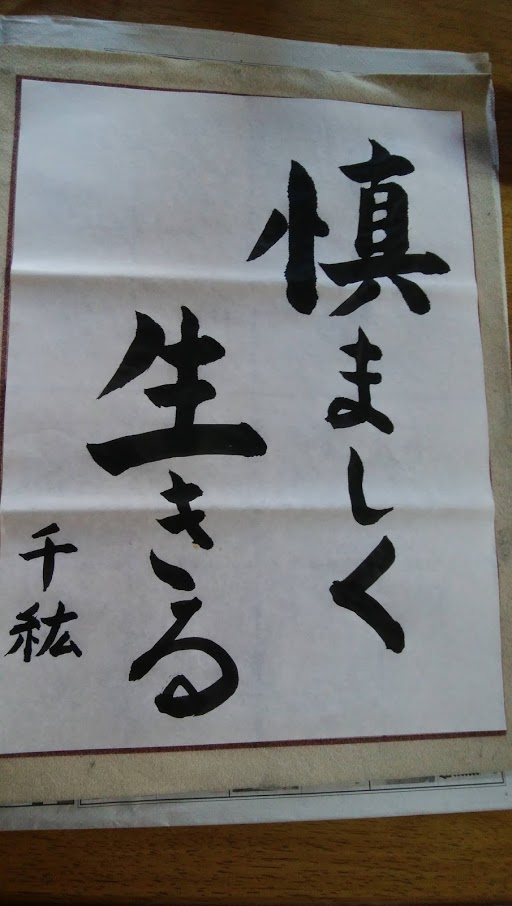 慎ましく
生きる
千紘